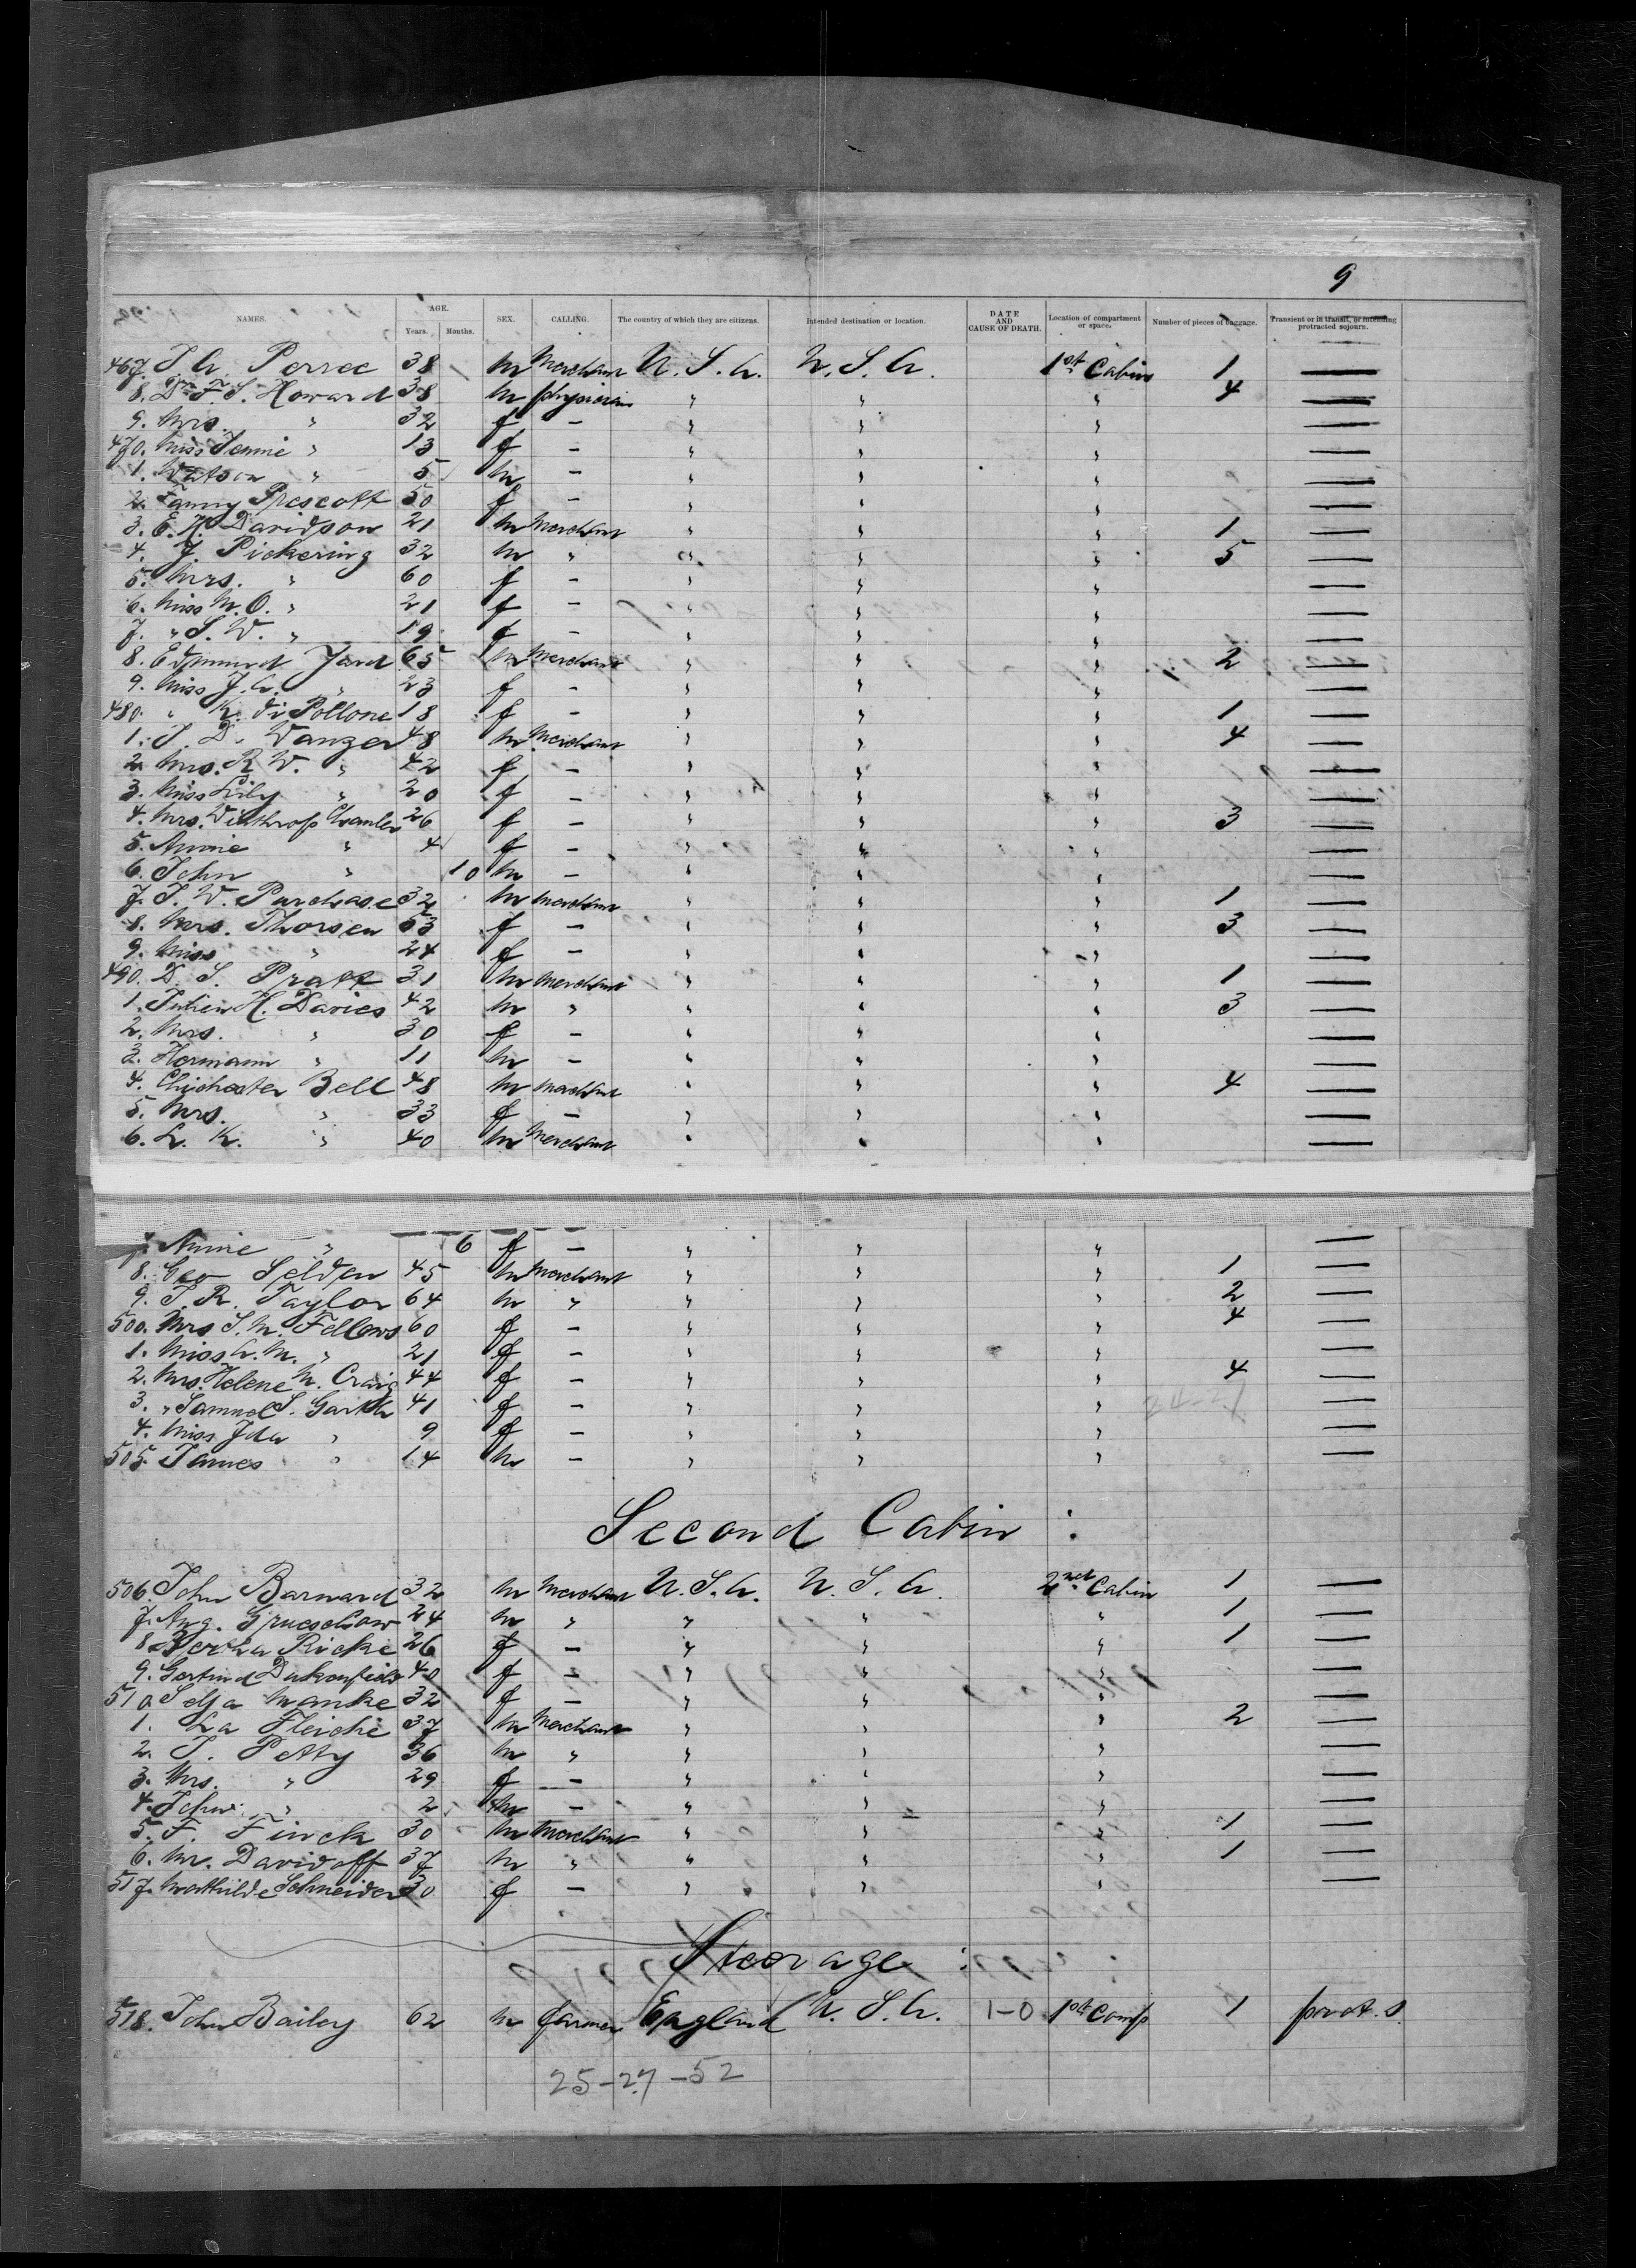 9
NAMES. AGE. Years. Months. SEX. CALLING. The country of which they are citizens. Intended destination or location. DATE AND CAUSE OF DEATH. Location of compartment or space. Number of pieces of baggage. Transient or in transit, or intending protracted sojourn.
467. J. A. 38 m Merchant U. S. A. U. S. A. 1st Cabin 1 —
8. Dr. F. S. Howard 38 m physician " " " 4 —
9. Mrs. " 32 f – " " " —
470. Miss Jennie " 13 f – " " " —
1. Watson " 5 m – " " " —
2. Fanny Prescott 50 f – " " " —
3. E. H. Davidson 21 m Merchant " " " 1 —
4. J. Pickering 32 m " " " " 5 —
5. Mrs. " 60 f – " " " —
6. Miss M. O. " 21 f – " " " —
7. " S. W. " 19 f – " " " —
8. Edmund Yard 65 m Merchant " " " 2 —
9. Miss J. A. " 23 f – " " " —
480. " K. di Pollone 18 f – " " " 1 —
1. J. D. Wanzer 48 m Merchant " " " 4 —
2. Mrs. R. W. " 42 f – " " " —
3. Miss Lily " 20 f – " " " —
4. Mrs. Winthrop Chanler 26 f – " " " 3 —
5. Annie " 4 f – " " " —
6. John " 10 m – " " " —
7. J. W. Purchase 32 m Merchant " " " 1 —
8. Mrs. Thorsen 53 f – " " " 3 —
9. Miss " 24 f – " " " —
490. D. S. Pratt 31 m Merchant " " " 1 —
1. Julien H. Davies 42 m " " " " 3 —
2. Mrs. " 30 f – " " " —
3. Hermann " 11 m – " " " —
4. Chichester Bell 48 m Merchant " " " 4 —
5. Mrs. " 33 f – " " " —
6. L. K. " 40 m Merchant " " " —
7. Annie " 6 f – " " " —
8. Geo Selden 45 m Merchant " " " 1 —
9. J. R. Taylor 64 m " " " " 2 —
500. Mrs S. M. Fellows 60 f – " " " 4 —
1. Miss A. M. " 21 f – " " " —
2. Mrs. Helene M. Craig 44 f – " " " 4 —
3. " Samuel S. 41 f – " " " —
4. Miss Ida " 9 f – " " " —
505. James " 14 m – " " " —
Second Cabin :
506. John Barnard 32 m Merchant U. S. A. U. S. A. 2nd Cabin 1 —
7. Aug. 24 m " " " " 1 —
8. Ricke 26 f – " " " 1 —
9. Gertrud 40 f – " " " —
510. Manke 32 f – " " " —
1. La Fleiche 37 m Merchant " " " 2 —
2. J. Petty 36 m " " " " —
3. Mrs. " 29 f – " " " —
4. John " 2 m – " " " —
5. F. Finck 30 m Merchant " " " 1 —
6. M. Davidoff 37 m " " " " 1 —
517. Mathilde Schneider 30 f – " " " —
Steerage :
518. John Bailey 62 m farmer England U. S. A. 1-0 1st Comp 1 prot. s.
25-27-52